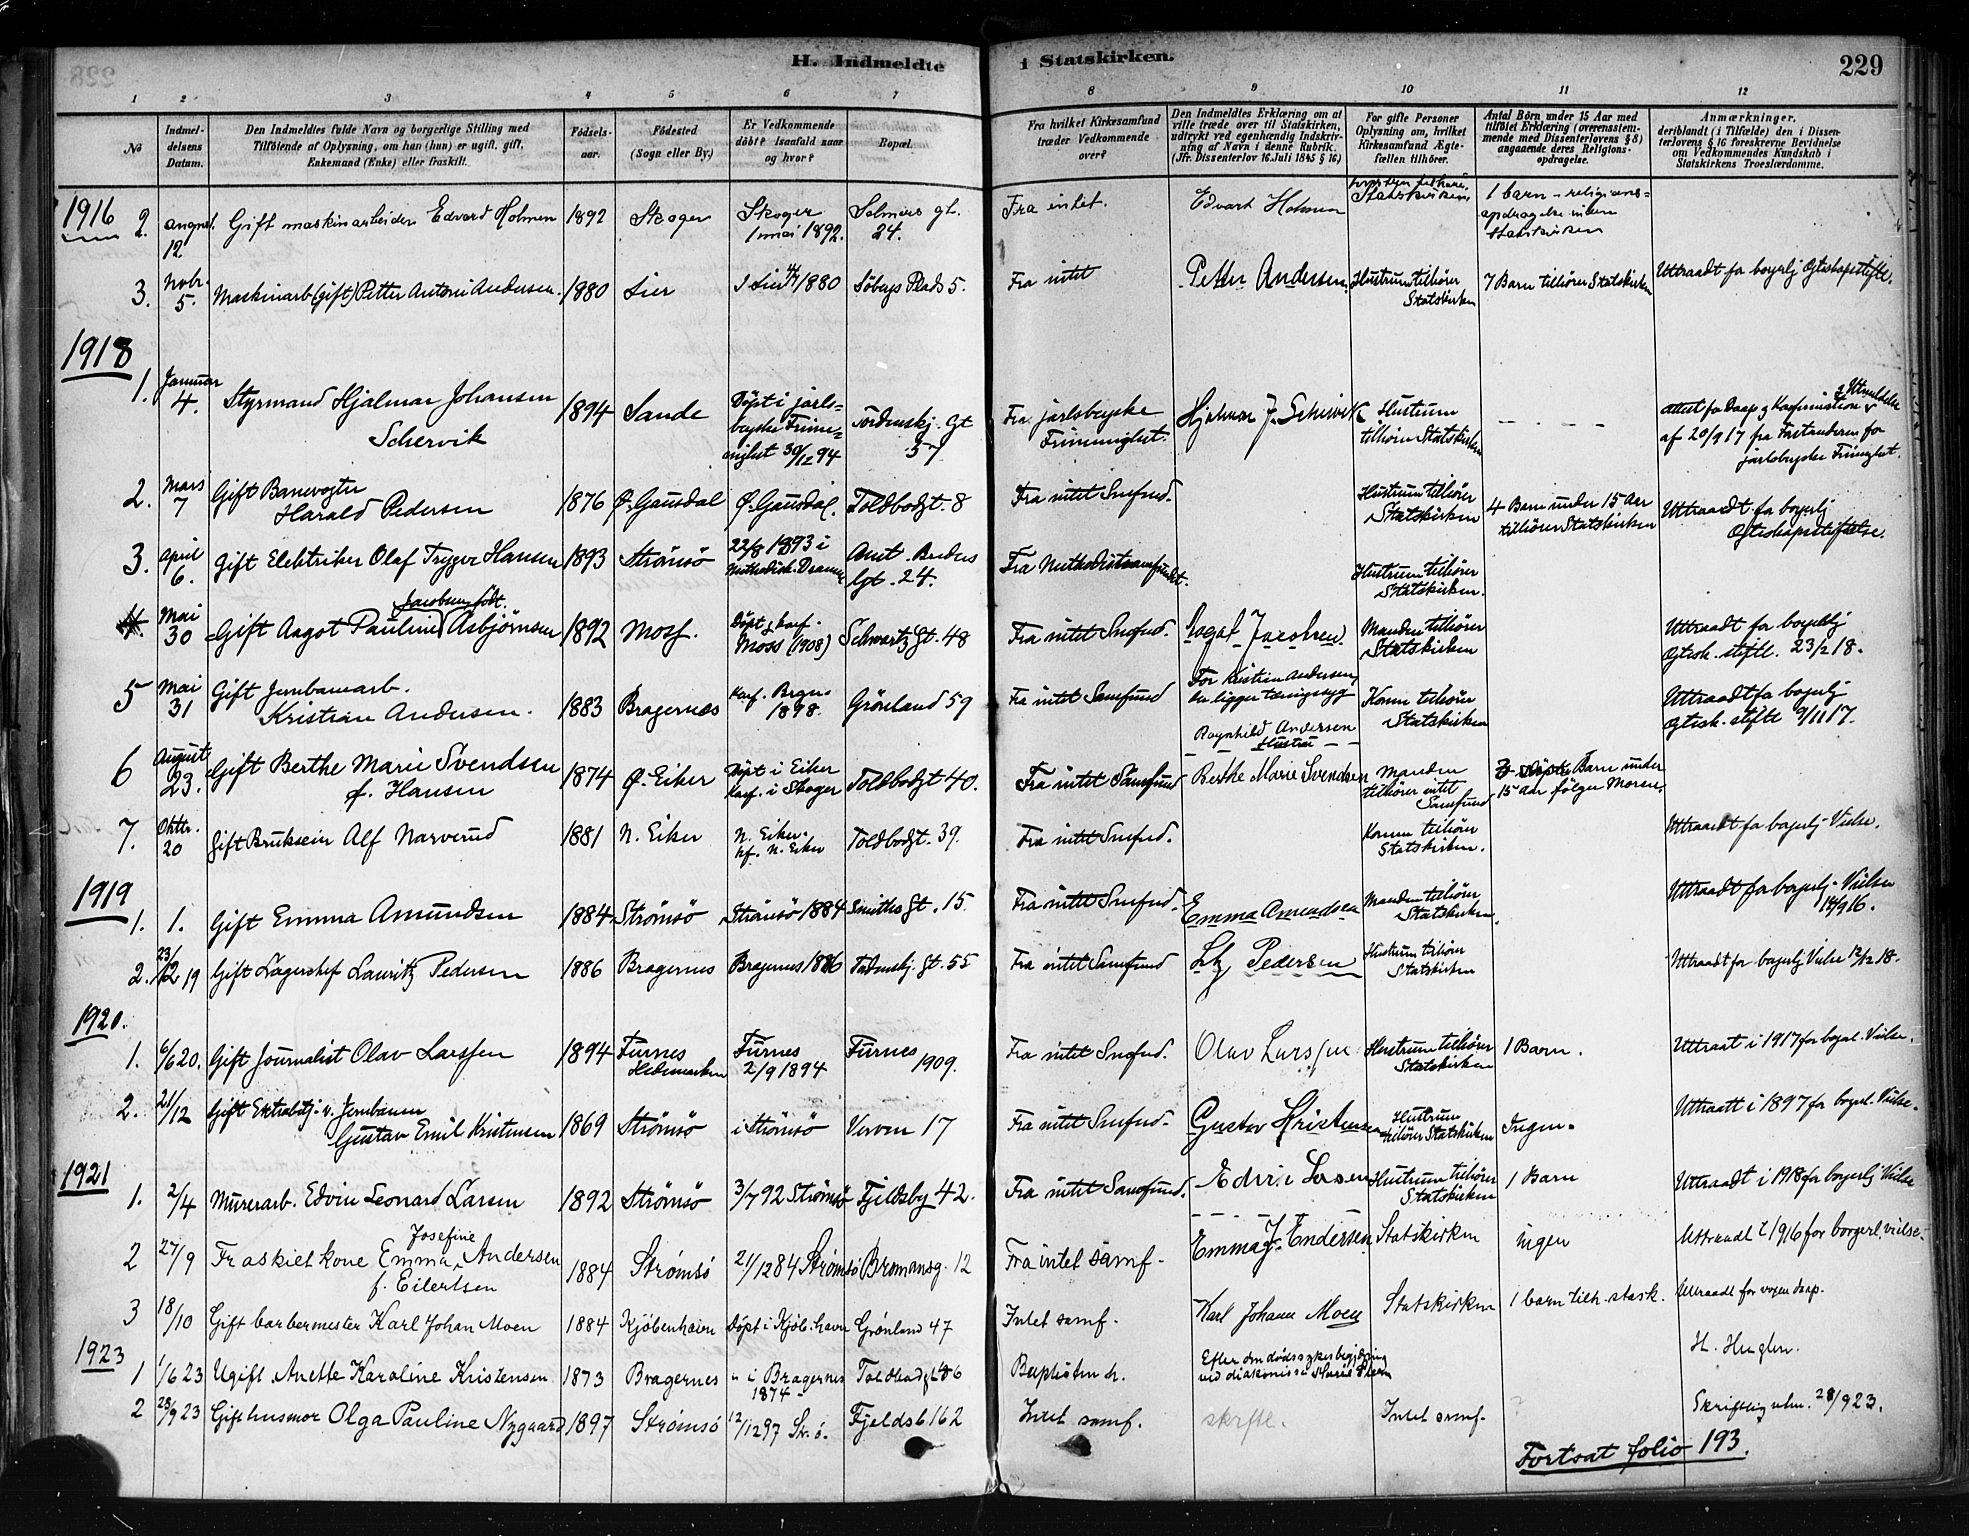 H. Indmeldte i Statskirken. 229
1 2 3 4 5 6 7 8 9 10 11 12
No
Indmel-
delsens
Datum.
Den Indmeldtes fulde Navn og borgerlige Stilling med
Tilföiende af Oplysning, om han (hun) er ugift, gift,
Enkemand (Enke) eller fraskilt.
Födsels-
aar.
Födested
(Sogn eller By.)
Er Vedkommende
döbt? Isaafald naar
og hvor?
Bopæl.
Fra hvilket Kirkesamfund
træder Vedkommende
over?
Den Indmeldtes Erklæring om at
ville træde over til Statskirken,
udtrykt ved egenhændig Indskriv-
ning af Navn i denne Rubrik.
(Jfr. Dissenterlov 16. Juli 1845 § 16)
For gifte Personer
Oplysning om, hvilket
Kirkesamfund Ægte-
fællen tilhörer.
Antal Börn under 15 Aar med
tilföiet Erklæring (overensstem-
mende med Dissenterlovens § 8)
angaaende deres Religions-
opdragelse.
Anmærkninger,
deriblandt (i Tilfælde) den i Dissen-
terlovens § 16 foreskrevne Bevidnelse
om Vedkommendes Kundskab i
Statskirkens Troeslærdomme.
1916
2. august 12. Gift maskinarbeider Edvard Holmen 1892 Skoger Skoger 1 mai 1892. Selmers gt. 24. Fra intet. Edvart Holmen Statskirken. 1 barn - religions= opdragelse inden Statskirken
3. Novbr. 5. Maskinarb (gift) Petter Antoni Andersen. 1880 Lier I Lier 4/7 1880 Söbergs Plads 5. Fra intet Petter Andersen. Hustrum tilhörer Statskirken 7 Barn tilhörer Statskirken Uttraadt fa borgerlig Egteskapsstifte.
1918
1. Januar 4. Styrmand Hjalmar Johansen Schervik 1894 Sande Döpt i jarls= bergske Frime= nighet 30/12 94 Tordenskj. gt 57 Fra jarlsbergske Frimenighet. Hjalmar J. Schervik Hustrum tilhörer Statskirken - - - - - Attest fa Daap og Konfirmation & Utmeldelse af 20/9 17 fra Forstanderen for jarlsbergske Frimenighet.
2. Mars 7 Gift Banevogter Harald Pedersen 1876 Ø. Gausdal Ø. Gausdal. Toldbodgt. 8 Fra intet Smfund. Hustrum tilhörer Statskirken 4 Barn under 15 Aar tilhörer Statskirken Uttraadt fa borgerlj Egteskapsstiftelse.
3. April 6. Gift Elektriker Olaf Trygve Hansen 1893 Strömsö 22/8 1893 i Methodistk. Dramen Amt. Bredens Gt. 24. Fra Methodistsamfundet. Hustrum tilhörer Statskirken.
4. Mai 30 Gift Aagot Pauline Jacobsen födt Asbjörnsen 1892 Moss. Döpt & konf. Moss (1908) Schwartz Gt. 48 Fra intet Smfund. Aagot Jacobsen. Manden tilhörer Statskirken Uttraadt for borgerlj Egtesk. stifte. 23/2 18.
5 Mai 31 Gift Jernbanearb. Kristian Andersen. 1883 Bragernæs Konf. Bragnes 1898. Grönland 59 Fra intet Samfund For Kristian Andersen, der ligger tæringssyg Ragnhild Andersen Hustru Konen tilhörer Statskirken Uttraadt fa borgerlj Egtesk. stifte 9/11 17.
6 August 23. Gift Berthe Marie Svendsen f. Hansen 1874 Ø. Eiker Döpt i Eiker Konf. i Skoger Toldbodgt 40. Fra intet Samfund Berthe Marie Svendsen Manden tilhörer intet Samfund. Barn under 15 Aar fölger Moren.
7. Oktbr. 20 Gift Bruksein Alf Narverud 1881 N. Eiker N. Eiker. kf. N. Eiker Toldbodgt. 39. Fra intet Smfund. Konen tilhörer Statskirken. Uttraadt fa borgerlj Vielse.
1919
1. 1. Gift Emma Amundsen 1884 Strömsö Strömsö 1884 Smiths Gt. 15. Fra intet Smfund. Emma Amundsen Manden tilhörer Statskirken. Uttraadt for borgerlj Vielse 14/9 16.
2. 23/12 19 Gift Lagerchef Lauritz Pedersen 1886 Bragernes Bragernes 1886 Tordenskj. Gt. 55 Fra intet Samfund Ltz Pedersen Hustrum tilhörer Statskirken Uttraadt for borgerlj Vielse 12/12 18.
1920.
1. 6/6 20. Gift Journalist Olav Larssen 1894 Furnes Hedemarken Furnes 2/9 1894 Furnes 1909. Fra intet Smfund. Olav Larssen Hustrum tilhörer Statskirken 1 Barn. Uttraat i 1917 for borgel. Vielse.
2. 21/12 Gift Extrabtj. v. Jernbanen Gustav Emil Kristensen 1869 Strömsö i Strömsö Verven 17 Fra intet Smfund. Gustav Kristensen Hustrum tilhörer Statskirken Ingen. Uttraatt i 1897 for borgerl. Vielse.
1921
1. 2/4 Murerarb. Edvin Leonard Larsen 1892 Strömsö 3/7 92 Strömsö Fjeldsby 42. Fra intet Samfund. Edvin Larsen Hustrum tilhörer Statskirken 1 Barn Uttraadt i 1918 for borgerlj Vielse
2 27/9 Fraskielt kone Emma Josefine Andersen f. Eilertsen 1884 Strömsö 21/12 84 Strömsö Bromansg. 12 Fra intet samf. Emma J. Andersen Statskirken ingen Uttraadt i 1916 for borgerl. vielse.
3 18/10 Gift barbermester Karl Johan Moen 1884 Kjöbenhavn Döpt i Kjöb.havn Grönland 47 Intet samf. Karl Johann Moen Statskirken 1 barn tilh. stask. Uttraadt for vogen daap.
1923
1 1/6 23 Ugift Anette Karoline Kristensen 1873 Bragernes " i Bragernes 1874 Toldbodgt 66 Baptisten k. Efter den dødssykes begjæring ved diakonisse Marie H. Huglen.
2 28/9 23 Gift husmor Olga Pauline Nygaard 1897 Strömsö 12/12 97 Str.ö. Fjeldsb 162 Intet samf. skrftl. Intet samf. ? Skriftlig utm. 28/9 23.
Fortsat folio 193.